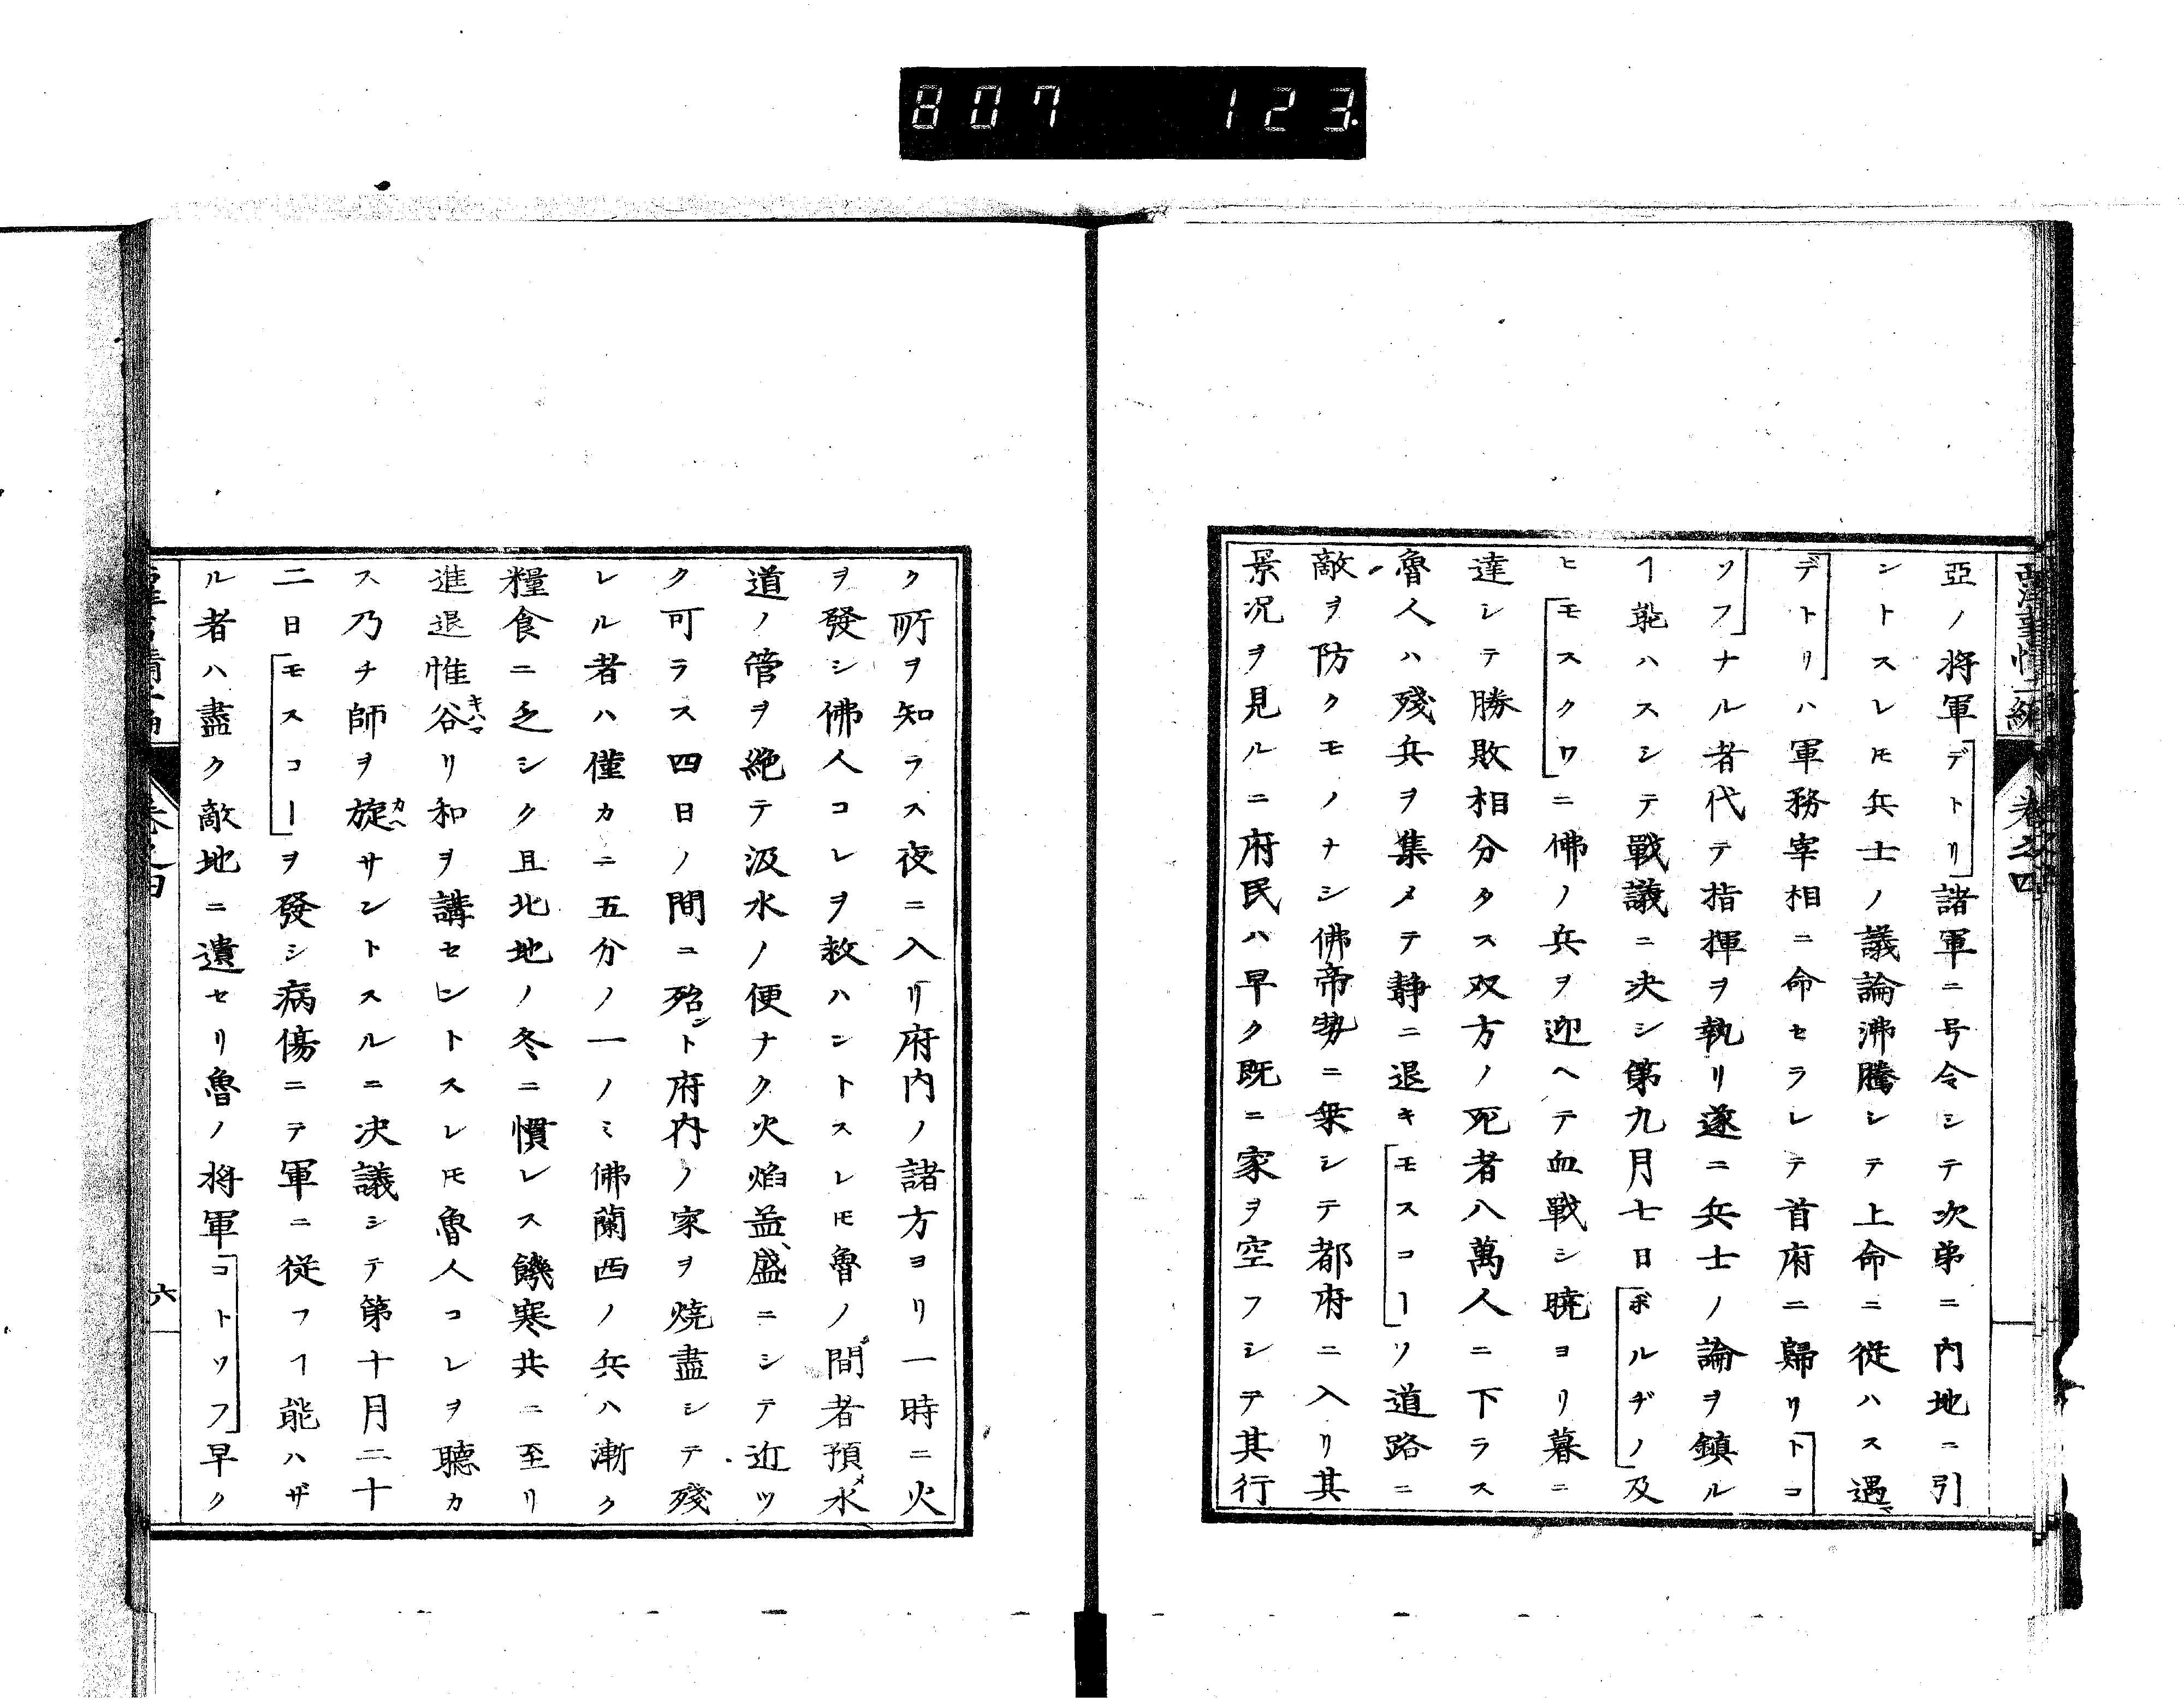 807 123.
西洋事情二編 卷之四
亞ノ将軍「デトリ」諸軍ニ号令シテ次弟ニ内地ニ引
ントスレ𪜈兵士ノ議論沸騰シテ上命ニ從ハス遇マ
「デトリ」ハ軍務宰相ニ命セラレテ首府ニ歸リ「トコ
ソフ」ナル者代テ指揮ヲ執リ遂ニ兵士ノ論ヲ鎮ル
ヿ能ハスシテ戰議ニ决シ第九月七日「ボルヂノ」及
ヒ「モスクワ」ニ佛ノ兵ヲ迎ヘテ血戰シ曉ヨリ暮ニ
達シテ勝敗相分タス双方ノ死者八萬人ニ下ラス
魯人ハ殘兵ヲ集メテ静ニ退キ「モスコー」ソ道路ニ
敵ヲ防クモノナシ佛帝勢ニ乗シテ都府ニ入リ其
景况ヲ見ルニ府民ハ早ク既ニ家ヲ空フシテ其行
ク所ヲ知ラス夜ニ入リ府内ノ諸方ヨリ一時ニ火
ヲ發シ佛人コレヲ救ハントスレ𪜈魯ノ間者預メ水
道ノ管ヲ絶テ汲水ノ便ナク火焰益盛ニシテ近ツ
ク可ラス四日ノ間ニ殆ント府内ノ家ヲ焼盡シテ殘
レル者ハ僅カニ五分ノ一ノミ佛蘭西ノ兵ハ漸ク
糧食ニ乏シク且北地ノ冬ニ慣レス饑寒共ニ至リ
進退惟谷キハマリ和ヲ講セントスレ𪜈魯人コレヲ聽カ
ス乃チ師ヲ旋カヘサントスルニ决議シテ第十月二十
二日「モスコー」ヲ發シ病傷ニテ軍ニ従フヿ能ハザ
ル者ハ盡ク敵地ニ遺セリ魯ノ将軍「コトソフ」早ク
六